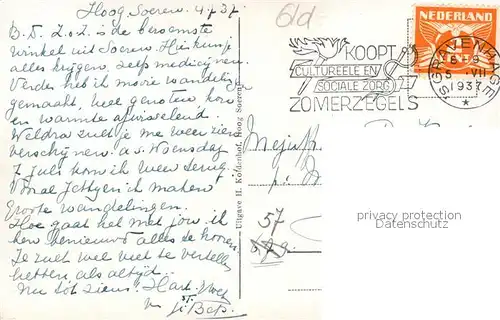 Hoog Soeren. 4.7.'37.
B.D. Z.o.Z. is de beroemste
winkel uit Soeren. Hier kun je
alles krijgen, zelfs medicijnen.
Verder heb ik mooie wandelingen
gemaakt, veel genoten, kou
en warmte afwisselend.
Weldra zult je me weer zien
verschijnen. a.s. Woensdag
7 Juli kom ik weer terug.
Vooral Jetty en ik maken
groote wandelingen.
Hoe gaat het met jou. ik
ben benieuwd alles te hooren
Je zult wel veel te vertellen
hebben als altijd.
Nu tot ziens! Hart.
v. Bep.
Uitgave H. Koldenhof, Hoog Soeren
61d
KOOPT
CULTUREELE EN
SOCIALE ZORG
ZOMERZEGELS
NEDERLAND
'S-GRAVENHAGE
5 VII
1937
Mejuffr.
57
privacy protection
Datenschutz